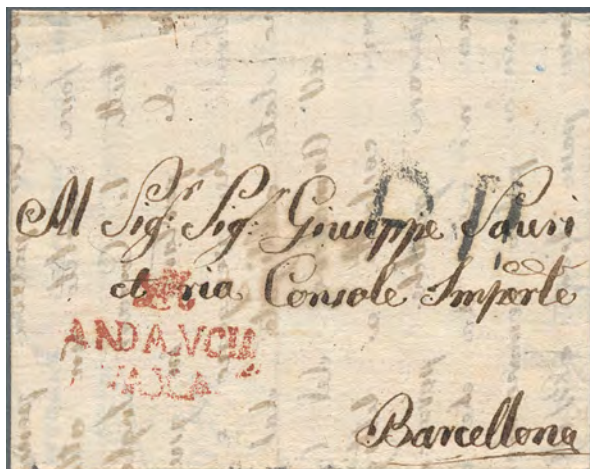 Al Sig.r Sig.r Giuseppe Pauri
ria Console Imperle
ANDALVCIA
BAXA
Barcellona